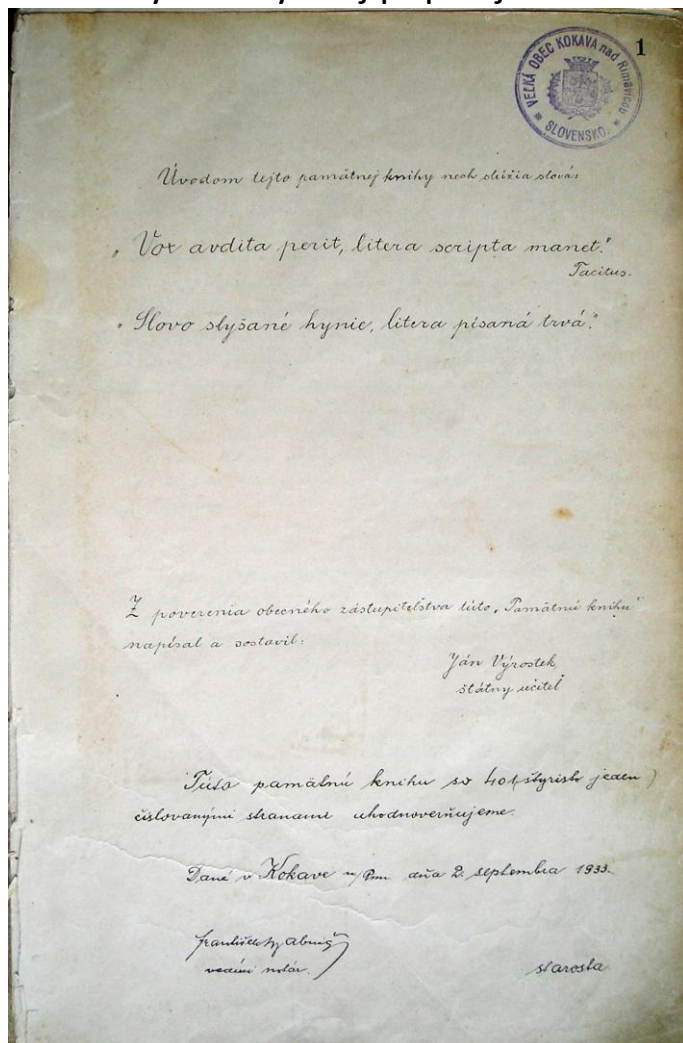 1
VEĽKÁ OBEC KOKAVA nad Rimavicou
* SLOVENSKO. *
Úvodom tejto pamätnej knihy nech slúžia slová:
„Vox avdita perit, litera scripta manet."
Tacitus.
„Slovo slyšané hynie, litera písaná trvá."
Z poverenia obecného zástupiteľstva túto „Pamätnú knihu"
napísal a sostavil:
Ján Výrostek
štátny učiteľ
Túto pamätnú knihu so 401 (štyristo jeden)
číslovanými stranami uhodnoverňujeme.
Dané v Kokave n/Rim. dňa 2. septembra 1933.
František
vedúci notár.
starosta